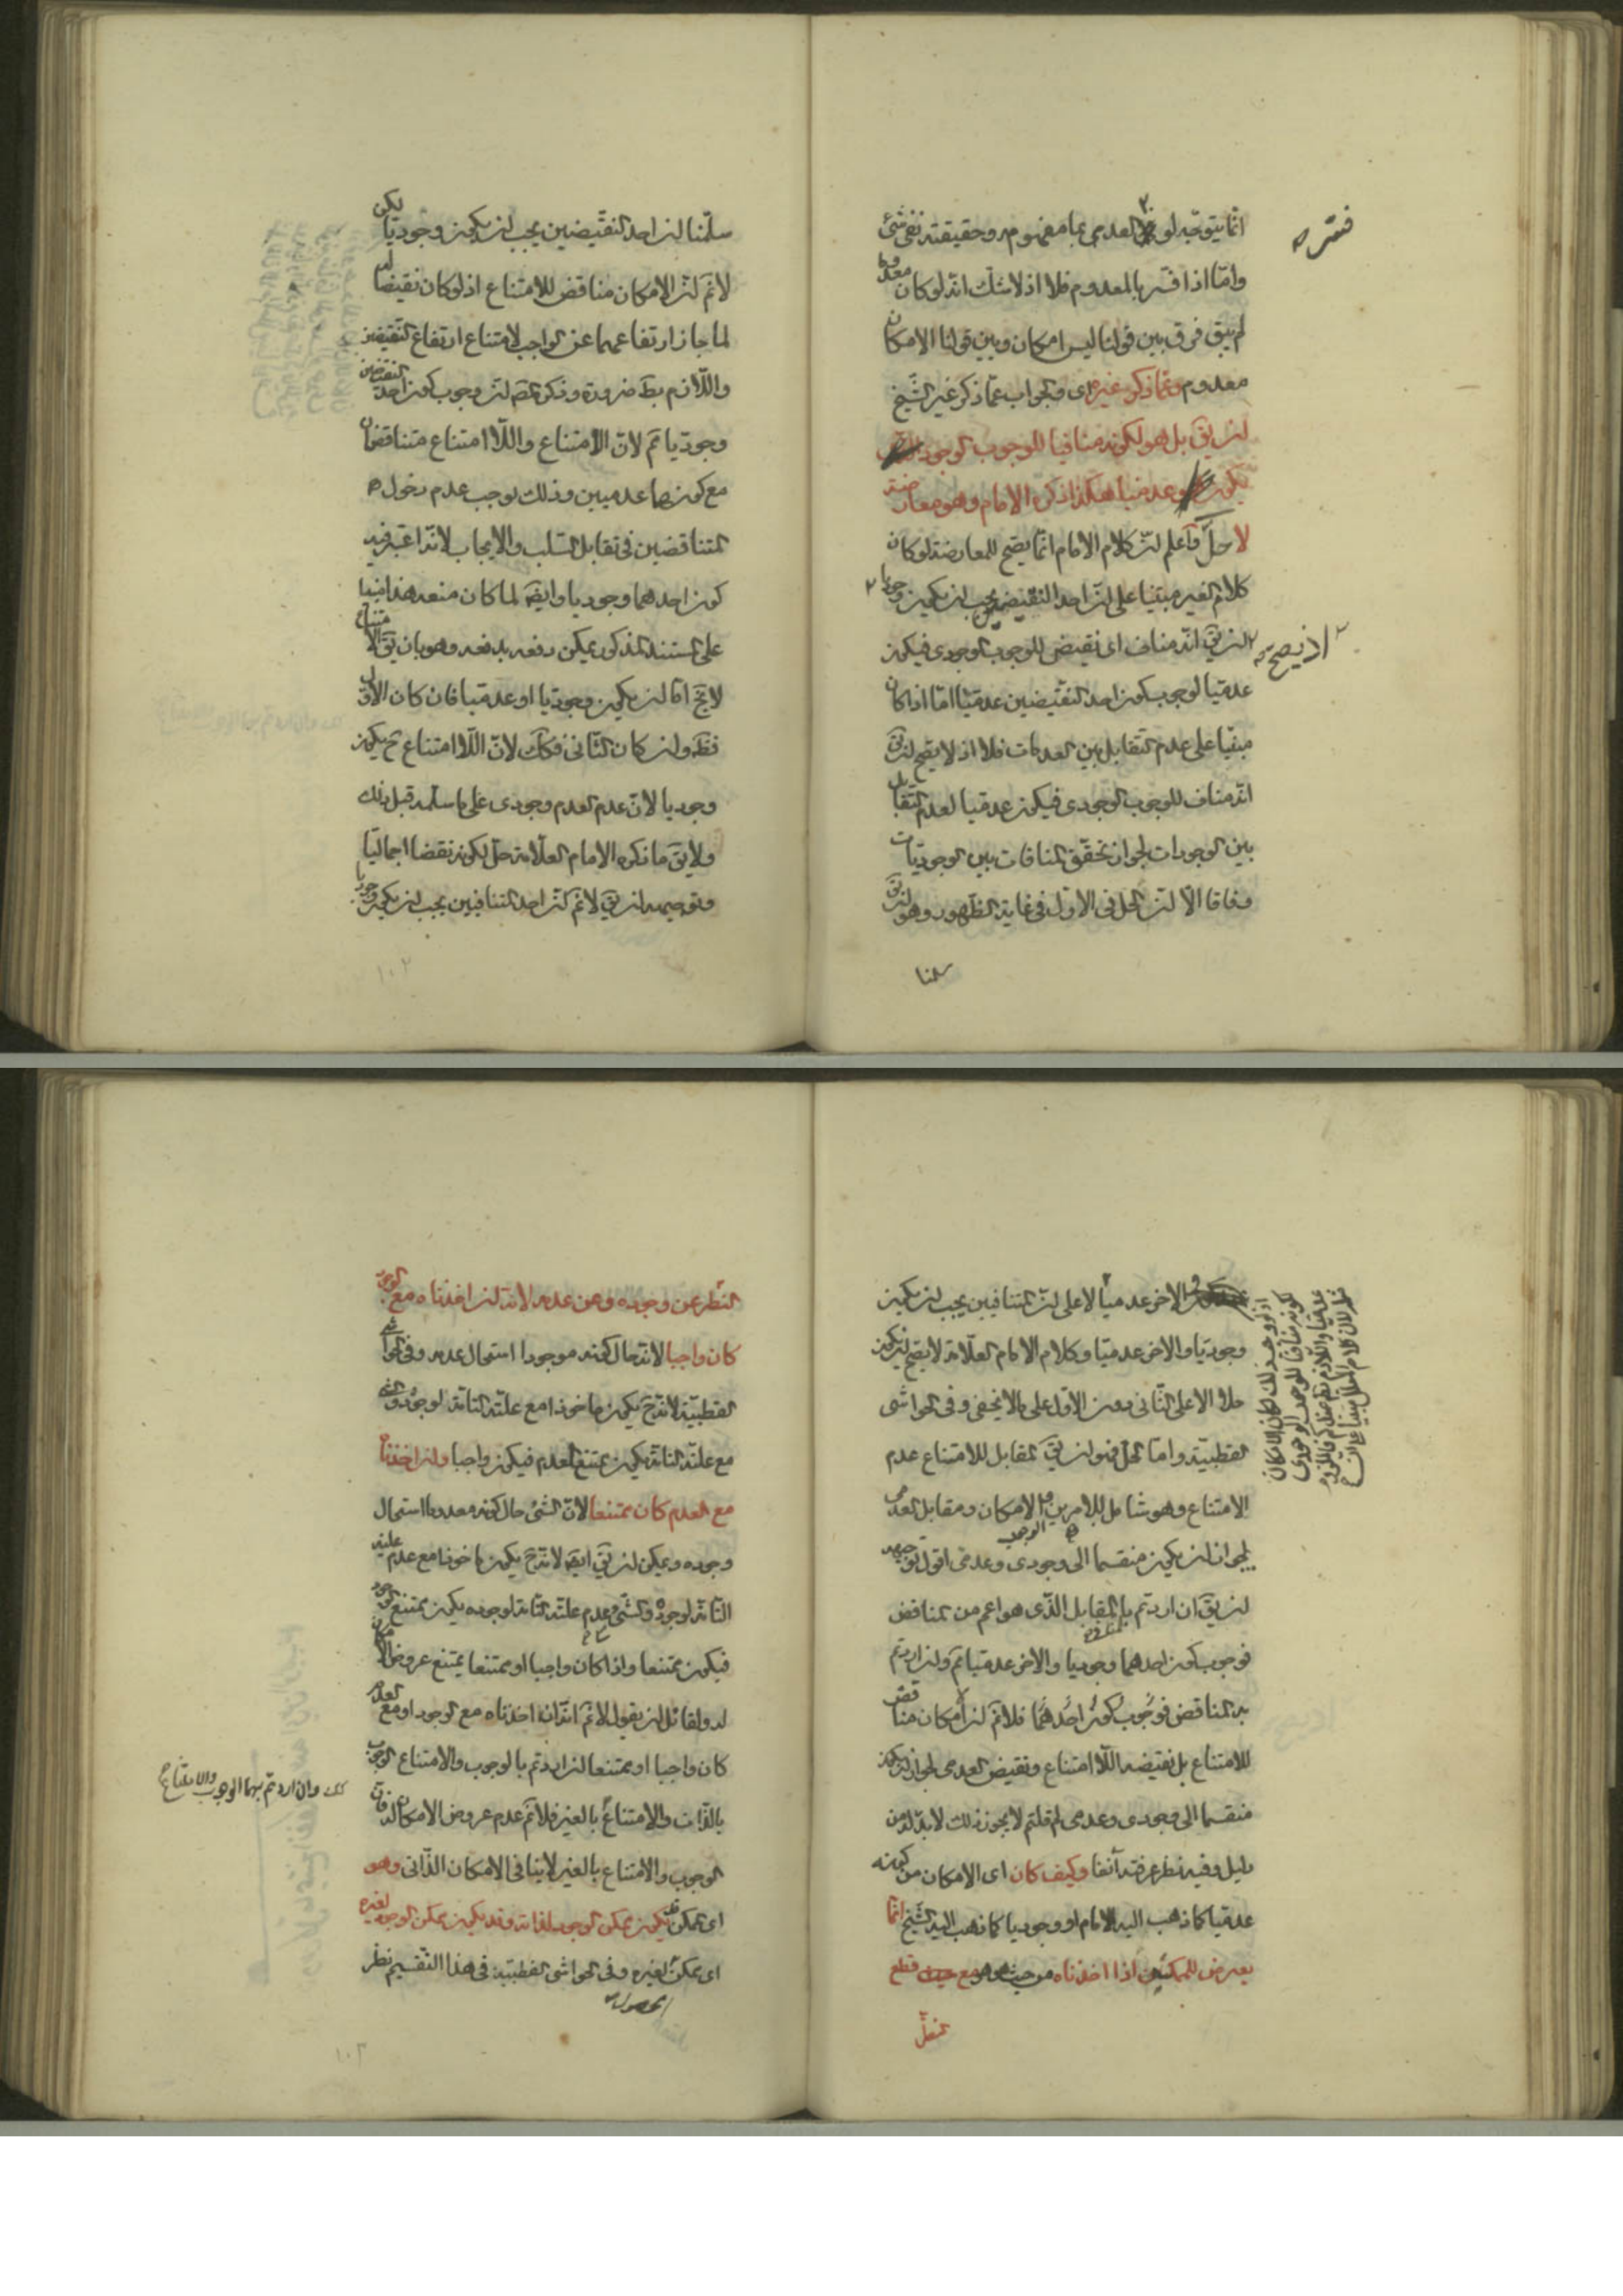 انما يتوجه لو العدمى بما مفهومه وحقيقته نفى شئ
فسّر
واما اذا فسّر بالمعدوم فلا اذ لا شك انه لو كان معدوما
لم يبق فرق بين قولنا ليس امكان وبين قولنا الامكان
معدوم وعما ذكره غيره اى والجواب عما ذكره غير الشيخ
ان يقَ بل هو لكونه منافيا للوجوب الوجودى
يكون عدميا هكذا ذكره الامام وهو معارضة
لا حلّ واعلم ان كلام الامام انما يصح للمعارضة لو كان
كلام الغير مبنيا على ان احد النقيضين يجب ان يكون وجوديا
اذ يصح
ان يقَ انه مناف اى نقيض للوجوب الوجودى فيكون
عدميا لوجوب كون احد النقيضين عدميا اما اذا كان
مبنيا على عدم التقابل بين العدمات فلا اذ لا يصح ان يقَ
انه مناف للوجوب الوجودى فيكون عدميا لعدم التقابل
بين الوجودات لجواز تحقق المنافات بين الوجوديات
وفاقا الا ان الحل فى الاول فى غاية الظهور وهو ان يقَ
سلمنا
سلّمنا ان احد النقيضين يجب ان يكون وجوديا لكن
لا نمَ ان الامكان مناقض للامتناع اذ لو كان نقيضا له
لما جاز ارتفاعهما عن الواجب لامتناع ارتفاع النقيضين
واللازم بطَ ضرورة وذكر المص ان وجوب كون احد النقيضين
وجوديا نمَ لان الامتناع واللاامتناع متناقضان
مع كونهما عدميين وذلك يوجب عدم دخول
المتناقضين فى تقابل السلب والايجاب لانه اعتبر فيه
كون احدهما وجوديا وايضَ لما كان منعه هذا مبنيا
على السند المذكور يمكن دفعه بدفعه وهو بان يقَ الامتناع
لا يخَ اما ان يكون وجوديا او عدميا فان كان الاول
فظَ وان كان الثانى فكك لان اللاامتناع حَ يكون
وجوديا لان عدم العدم وجودى على ما سلمه قبل ذلك
ولا يقَ ما ذكره الامام العلّامة حل لكونه نقضا اجماليا
وتوجيهه ان يقَ لا نمَ ان احد المتنافيين يجب ان يكون وجوديا
١٠٢
والاخر عدميا لا على ان المتنافيين يجب ان يكون
وجوديا والاخر عدميا وكلام الامام العلّامة لا يصح ان يكون
حلا الا على الثانى دون الاول على ما لا يخفى وفى الحواشى
القطبية واما الحل فهو ان يقَ المقابل للامتناع عدم
الامتناع وهو شامل للامرين الامكان ومقابل العدمى
الوجوب
يجوز ان يكون منقسما الى وجودى وعدمى اقول توجيهه
ان يقَ ان اردتم بالمقابل الذى هو اعم من المناقض
فوجوب كون احدهما وجوديا والاخر عدميا نمَ وان اردتم
به المناقض فوجوب كون احدهما فلا نمَ ان امكان مناقض
للامتناع بل نقيضه اللاامتناع ونقيض العدمى لجواز ان يكون
منقسما الى وجودى وعدمى لم قلتم لا يجوز ذلك لا بد له من
دليل وفيه نظر عرفته آنفا وكيف كان اى الامكان من كونه
عدميا كما ذهب اليه الامام او وجوديا كما ذهب اليه الشيخ انما
يعرض للممكن اذا اخذناه من حيث هو هو مع قطع
النظر
النظر عن وجوده وعن عدمه لانه ان اخذناه مع الوجود
كان واجبا لانه حال كونه موجودا استحال عدمه وفى الحواشى
القطبية لانه حَ يكون ماخوذا مع علته التامة لوجوده والشئ
مع علته التامة يكون ممتنع العدم فيكون واجبا وان اخذناه
مع العدم كان ممتنعا لان الشئ حال كونه معدوما استحال
وجوده ويمكن ان يقَ ايضَ لانه حَ يكون ماخوذا مع عدم علته
التامة لوجوده والشئ مع عدم علته التامة لوجوده يكون ممتنع الوجود
فيكون ممتنعا واذا كان واجبا او ممتنعا يمتنع عروض الامكان
له ولقائل ان يقول لا نمَ انه ان اخذناه مع الوجود او مع العدم
كان واجبا او ممتنعا ان اردتم بالوجوب والامتناع الوجوب
كك وان اردتم بهما الوجوب والامتناع
بالذات والامتناع بالغير فلا نمَ عدم عروض الامكان له فان
الوجوب والامتناع بالغير لا ينافى الامكان الذاتى وهو
اى الممكن قد يكون ممكن الوجود لذاته وقد يكون ممكن الوجود لغيره
اى ممكن لغيره وفى الحواشى القطبية فى هذا التقسيم نظر
الحصول
١٠٣